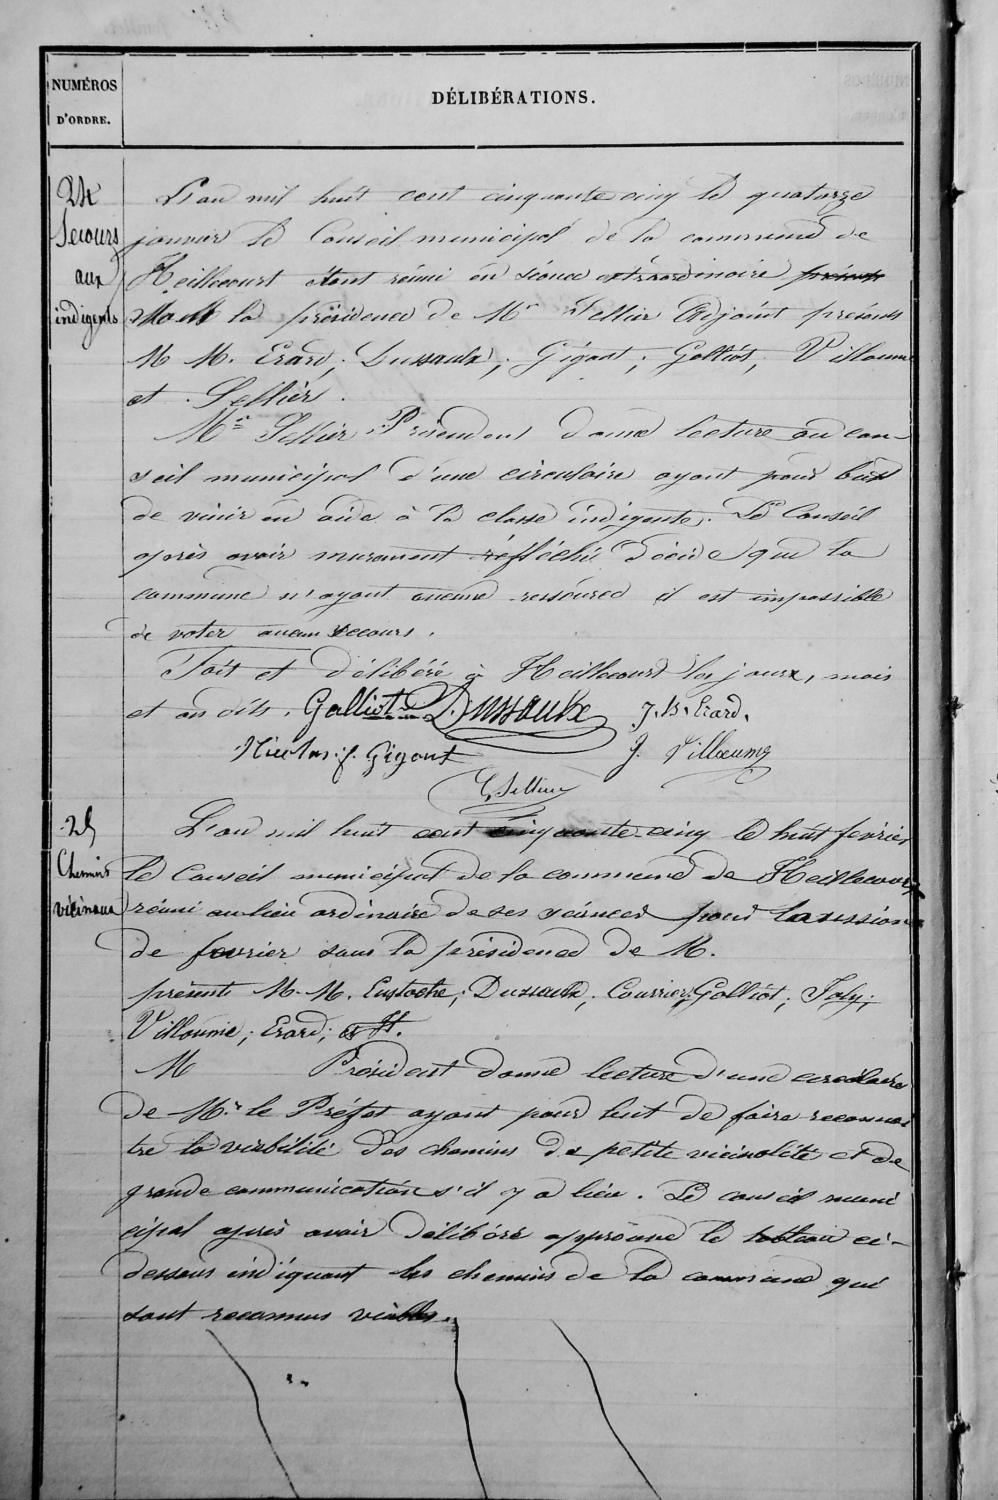 NUMÉROS
D'ORDRE.
DÉLIBÉRATIONS.
24
Secours
aux
indigents
L'an mil huit cent cinquante cinq le quatorze
janvier le Conseil municipal de la commune de
Heillecourt étant réuni en séance extraordinaire
la présidence de Mr Sellier Adjoint présents
M M. Erard, Dussaulx, Gigant, Galliot, Villaume
et Sellier.
Mr Sellier Président donne lecture au con-
seil municipal d'une circulaire ayant pour but
de vinir en aide à la classe indigente. Le Conseil
après avoir murement réfléchi décide que la
commune n'ayant aucune ressource il est impossible
de voter aucun secours.
Fait et délibéré à Heillecourt les jours, mois
et an dits. Galliot Dussaulx J. B. Erard.
Nicolas f. Gigant J. Villaume
Sellier
25
Chemins
vicinaux
L'an mil huit cent cinquante cinq le huit fevrier
le Conseil municipal de la commune de Heillecourt
réuni au lieu ordinaire de ses séances pour la session
de fevrier sous la présidence de M.
présents M. M. Eustache, Dussaulx, Courrier, Galliot, Joly,
Villaume, Erard, et H.
M Président donne lecture d'une circulaire
de Mr le Préfet ayant pour but de faire reconnai
tre la viabilité des chemins de petite vicinalité et de
grande communication s'il y a lieu. Le conseil muni
cipal après avoir délibéré approuve le tableau ci-
dessous indiquant les chemins de la commune qui
sont reconnus viables.